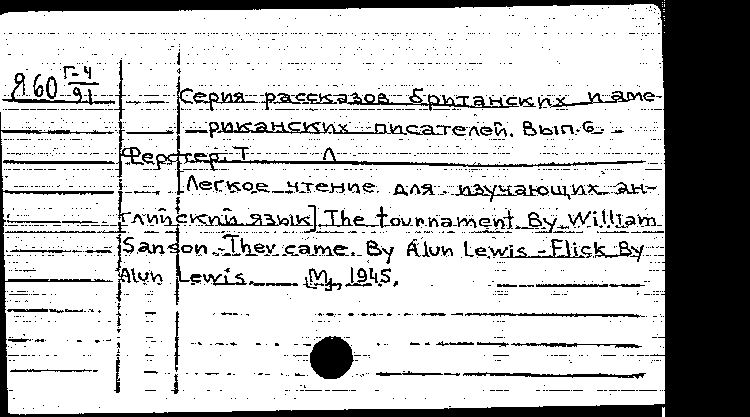 Я60 Г-4/91
Серия рассказов британских и аме-
риканских писателей. Вып.6.
Ферстер. Т Л
Легкое чтение для изучающих ан-
глийский язык]. The tournament By William
Sanson. - They came. By Alun Lewis - Flick By
Alun Lewis. [M], 1945.